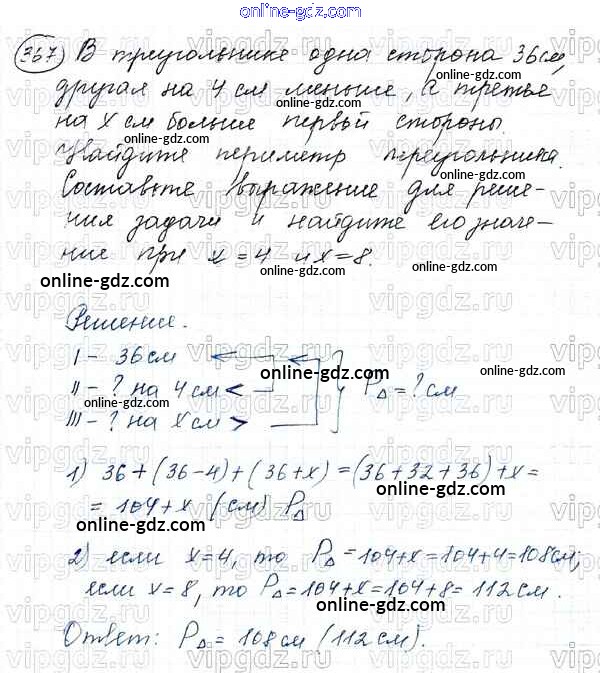 online-gdz.com
367) В треугольнике одна сторона 36см,
online-gdz.com
другая на 4 см меньше, а третья
online-gdz.com
на x см больше первой стороны.
online-gdz.com
Найдите периметр треугольника.
Составьте выражение для реше-
online-gdz.com
ния задачи и найдите его значе-
ние при x=4 и x=8.
online-gdz.com
online-gdz.com
vipgdz.ru
Решение.
I - 36см
online-gdz.com
II - ? на 4 см <
P△ = ? см
III - ? на x см >
online-gdz.com
1) 36+(36-4)+(36+x)=(36+32+36)+x=
online-gdz.com
= 104+x (см) P△
online-gdz.com
2) если x=4, то P△=104+x=104+4=108см;
online-gdz.com
если x=8, то P△=104+x=104+8=112см.
online-gdz.com
Ответ: P△= 108см (112см).
online-gdz.com